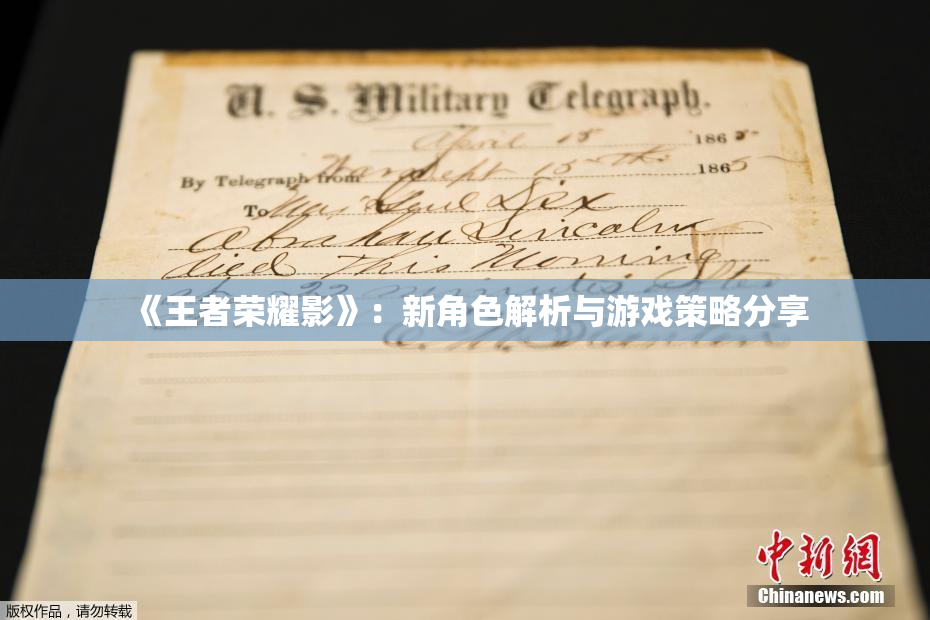 U. S. Military Telegraph.
April 15 1865
By Telegraph from War Dept 15th 1865
To Maj Genl Dix
Abraham Lincoln
died This Morning
22 minutes after
《王者荣耀影》：新角色解析与游戏策略分享
E. M. Stanton
中新网
Chinanews.com
版权作品，请勿转载